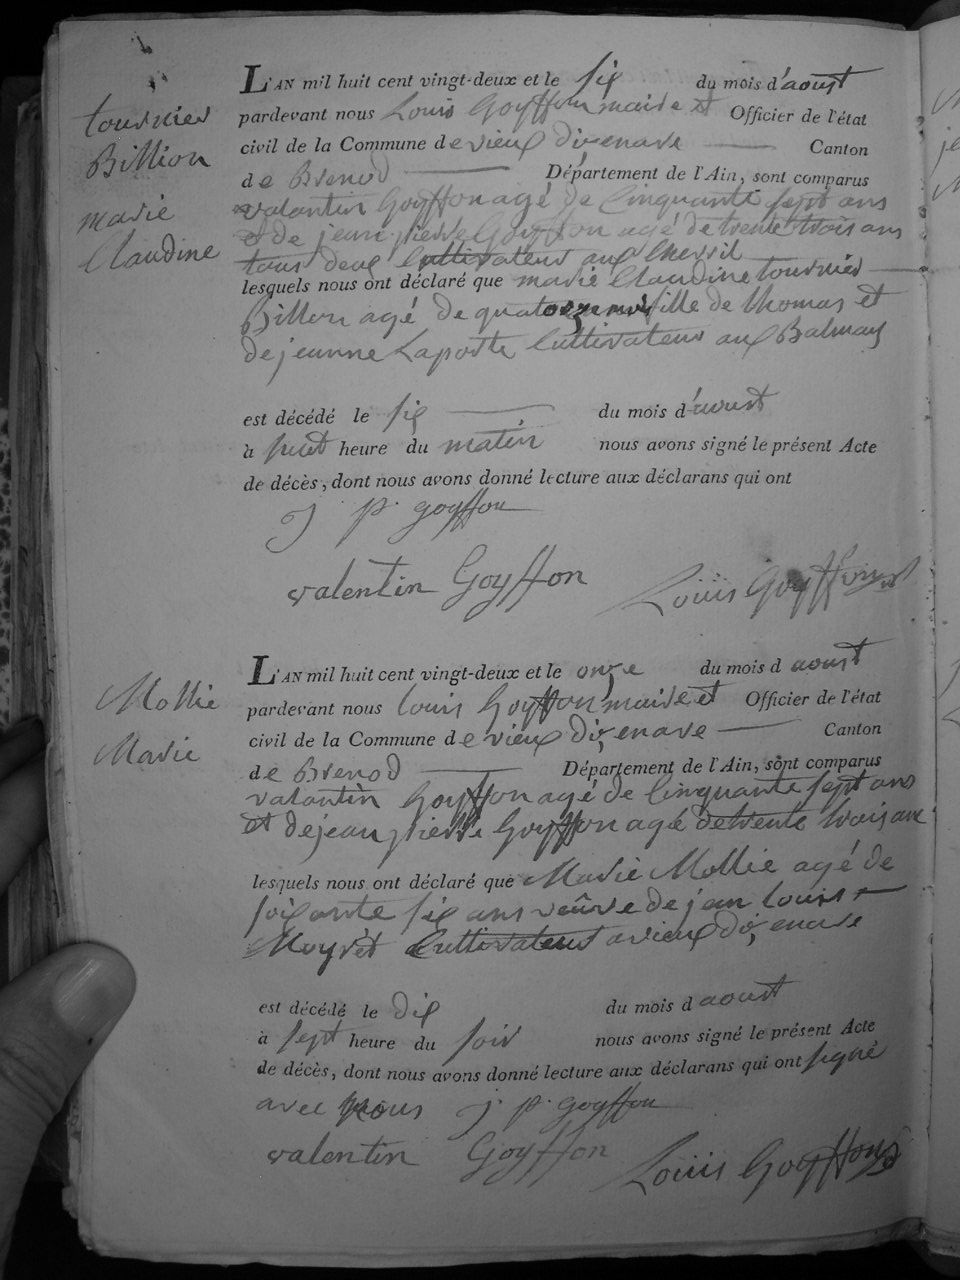 tournier
Billion
marie
Claudine
L'AN mil huit cent vingt-deux et le six du mois d'aoust
pardevant nous Louis Goyffon maire et Officier de l'état
civil de la Commune de vieux dizenave Canton
de Brenod Département de l'Ain, sont comparus
valantin Goyffon agé de Cinquante sept ans
et de jean pierre Goyffon agé de trente trois ans
tous deux Cultivateur aux
lesquels nous ont déclaré que marie Claudine tournier
Billon agé de quatorze fille de thomas et
de jeunne Laporte Cultivateur aux Balmay
est décédé le six du mois d'aoust
à huit heure du matin nous avons signé le présent Acte
de décès, dont nous avons donné lecture aux déclarans qui ont
j p. goyffon
valentin Goyffon Louis Goyffon
Mollie
Marie
L'AN mil huit cent vingt-deux et le onze du mois d aoust
pardevant nous Louis Goyffon maire et Officier de l'état
civil de la Commune de vieux dizenave Canton
de Brenod Département de l'Ain, sont comparus
valantin Goyffon agé de Cinquante sept ans
et de jean pierre Goyffon agé de trente trois ans
lesquels nous ont déclaré que Marie Mollie agé de
soixante six ans veûve de jean Louis
Moyrèt Cultivateur a vieux dizenave
est décédé le dix du mois d aoust
à sept heure du soir nous avons signé le présent Acte
de décès, dont nous avons donné lecture aux déclarans qui ont signé
avec nous j. p. goyffon
valentin Goyffon Louis Goyffon